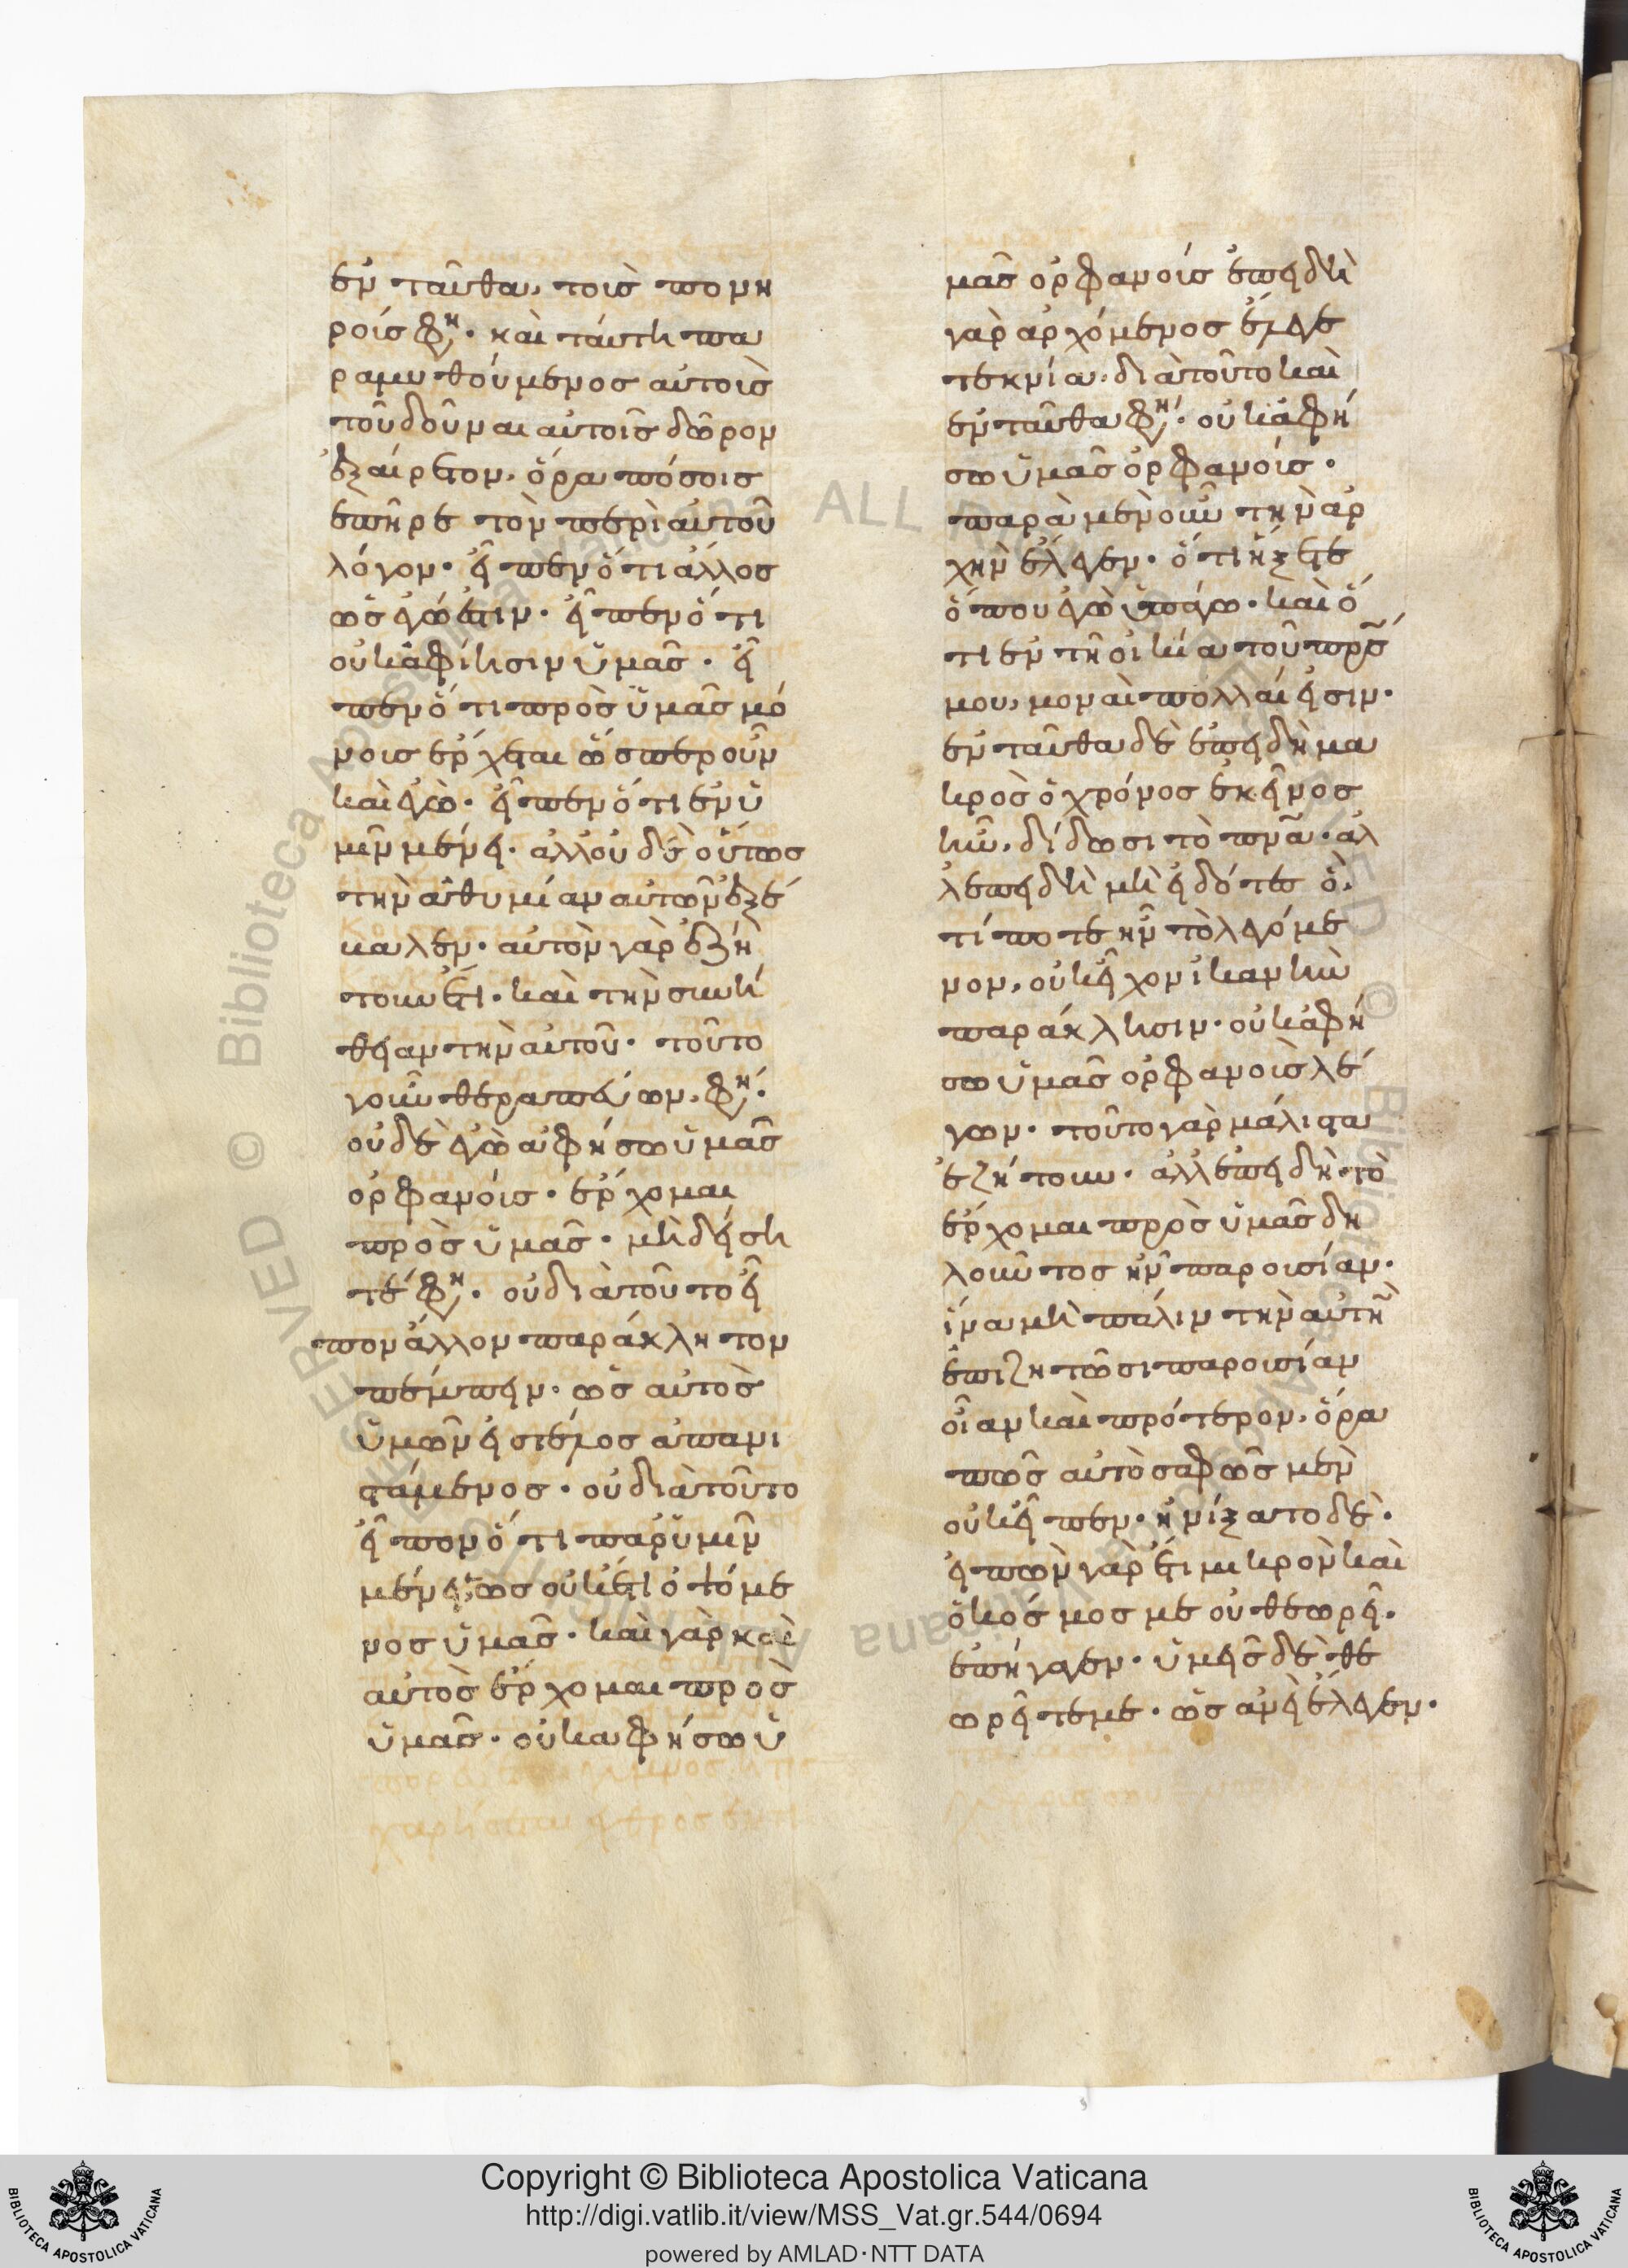 ἐνταῦθα, τοῖς πονη
ροῖς φη. καὶ ταύτη πα
ραμυθούμενος αὐτοῖς
τοῦ δοῦναι αὐτοῖς δῶρον
ἐξαίρετον, ὅρα πόσοις
ἐπῆρε τὸν περὶ αὐτοῦ
λόγον. εἶπεν ὅτι ἄλλος
ὡς ἐγώ ἐστιν. εἶπεν ὅτι
οὐκ ἀφίησιν ὑμᾶς. εἶ
πεν ὅτι πρὸς ὑμᾶς μό
νοις ἔρχεται ὥσπερ οὖν
καὶ ἐγὼ. εἶπεν ὅτι ἐν ὑ
μῖν μένει. ἀλλ' οὐδὲ οὕτως
τὴν ἀθυμίαν αὐτῶν ἐξε
καλεν. αὐτὸν γὰρ ἐζή
τουν ἔτι. καὶ τὴν συνή
θειαν τὴν αὐτοῦ. τοῦτο
γοῦν θεραπεύων, φη.
οὐδὲ ἐγὼ ἀφήσω ὑμᾶς
ὀρφανούς. ἔρχομαι
πρὸς ὑμᾶς. μὴ δείση
τέ φη. οὐ διὰ τοῦτο εἶ
πον ἄλλον παράκλητον
πέμπειν. ὡς αὐτὸς
ὑμῶν εἰς τέλος ἀπανι
στάμενος. οὐ διὰ τοῦτο
εἶπον ὅτι παρ' ὑμῖν
μένει, ὡς οὐκέτι ὀψόμε
νος ὑμᾶς. καὶ γὰρ καὶ
αὐτὸς ἔρχομαι πρὸς
ὑμᾶς. οὐκ ἀφήσω ὑ
μᾶς ὀρφανούς ἐπειδὴ
γὰρ ἀρχόμενος ἔλεγε
τεκνία, διὰ τοῦτο καὶ
ἐνταῦθα φη. οὐκ ἀφή
σω ὑμᾶς ὀρφανούς.
παρὰ μὲν οὖν τὴν ἀρ
χὴν ἔλεγεν. ὅτι ἥξετε
ὅπου ἐγὼ ὑπάγω. καὶ ὅ
τι ἐν τῆ οἰκία τοῦ πρς
μου, μοναὶ πολλαί εἰσιν.
ἐνταῦθα δὲ ἐπειδὴ μα
κρὸς ὁ χρόνος ἐκεῖνος
ἦν, δίδωσι τὸ πνα. ἀλ
λ' ἐπειδὴ μὴ εἰδότες ὅ,
τί ποτε ἦν τὸ λεγόμε
νον, οὐκ εἶχον ἱκανὴν
παράκλησιν. οὐκ ἀφή
σω ὑμᾶς ὀρφανούς λέ
γων. τοῦτο γὰρ μάλιστα
ἐζήτουν. ἀλλ' ἐπειδὴ τὸ
ἔρχομαι πρὸς ὑμᾶς δη
λοῦντος ἦν παρουσίαν.
ἵνα μὴ πάλιν τὴν αὐτὴν
ἐπιζητῶσι παρουσίαν
οἵαν καὶ πρότερον, ὅρα
πῶς αὐτὸ σαφῶς μὲν
οὐκ εἶπεν. ἠνίξατο δὲ.
εἰπὼν γὰρ ἔτι μικρὸν καὶ
ὁ κόσμος με οὐ θεωρεῖ.
ἐπήγαγεν. ὑμεῖς δὲ θε
ωρεῖτέ με. ὡς ἂν εἰ ἔλεγεν.
Copyright © Biblioteca Apostolica Vaticana
http://digi.vatlib.it/view/MSS_Vat.gr.544/0694
powered by AMLAD·NTT DATA